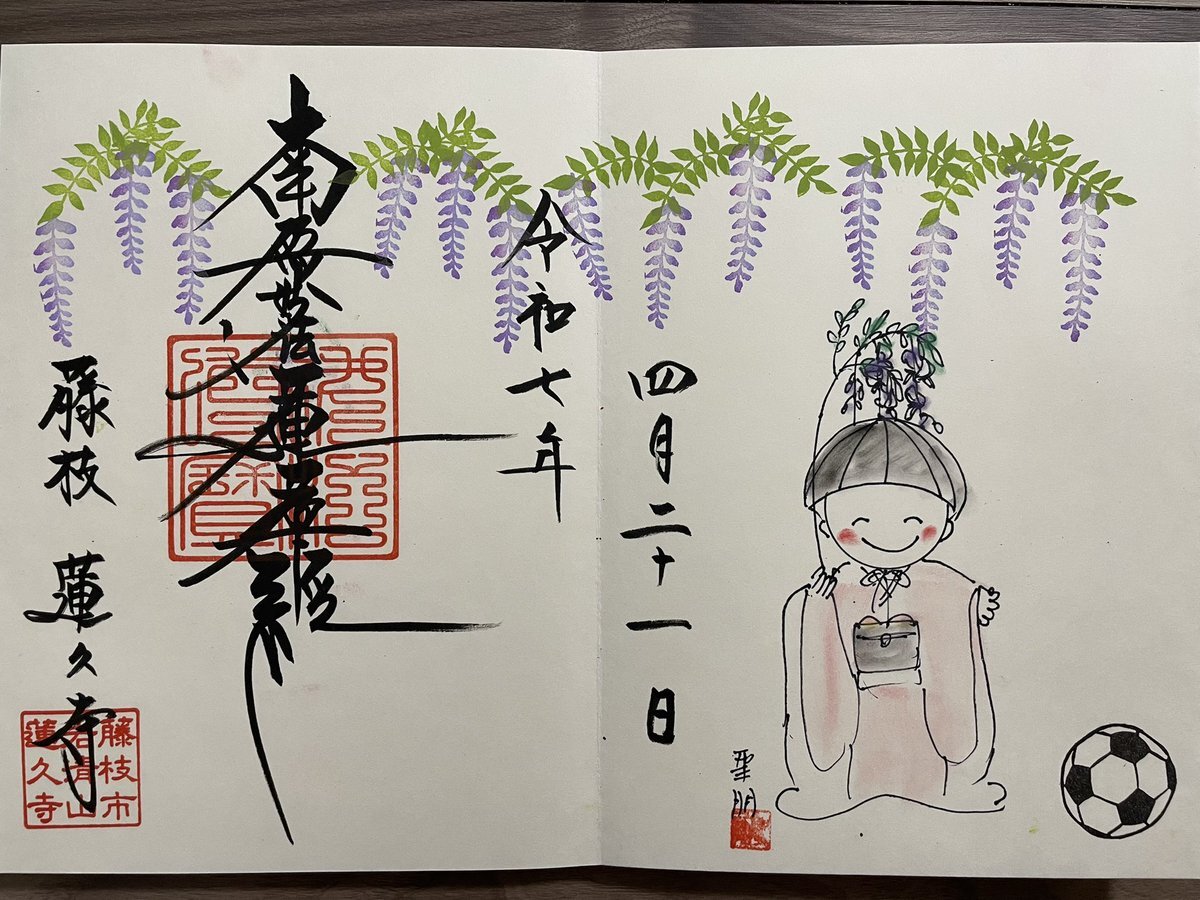 南無妙法蓮華経
令和七年
四月二十一日
藤枝 蓮久寺
藤枝市
蓮久寺